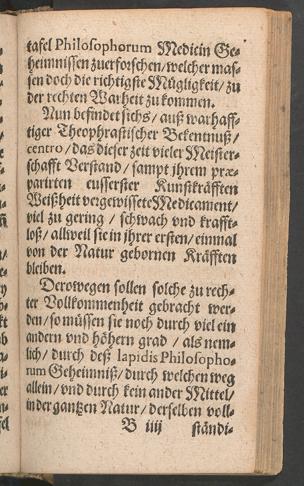 tafel Philosophorum Medicin Ge⸗
heimnissen zuerforschen/welcher mas⸗
sen doch die richtigste Mügligkeit/zu
der rechten Warheit zu kommen.
Nun befindet sichs/ auß warhaff⸗
tiger Theophrastischer Bekentnuß/
centro/das dieser zeit vieler Meister⸗
schafft Verstand/ sampt jhrem præ⸗
parirten eusserster Kunstkräfften
Weißheit vergewisseteMedicament/
viel zu gering / schwach vnd krafft⸗
loß/ allweil sie in jhrer ersten/einmal
von der Natur gebornen Kräfften
bleiben.
Derowegen sollen solche zu rech⸗
ter Vollkommenheit gebracht wer⸗
den/so müssen sie noch durch viel ein
andern vnd höhern grad / als nem⸗
lich/ durch deß lapidis Philosopho⸗
rum Geheimniß/durch welchen weg
allein/ vnd durch kein ander Mittel/
in der gantzen Natur/ derselben voll⸗
B iiij ständi⸗